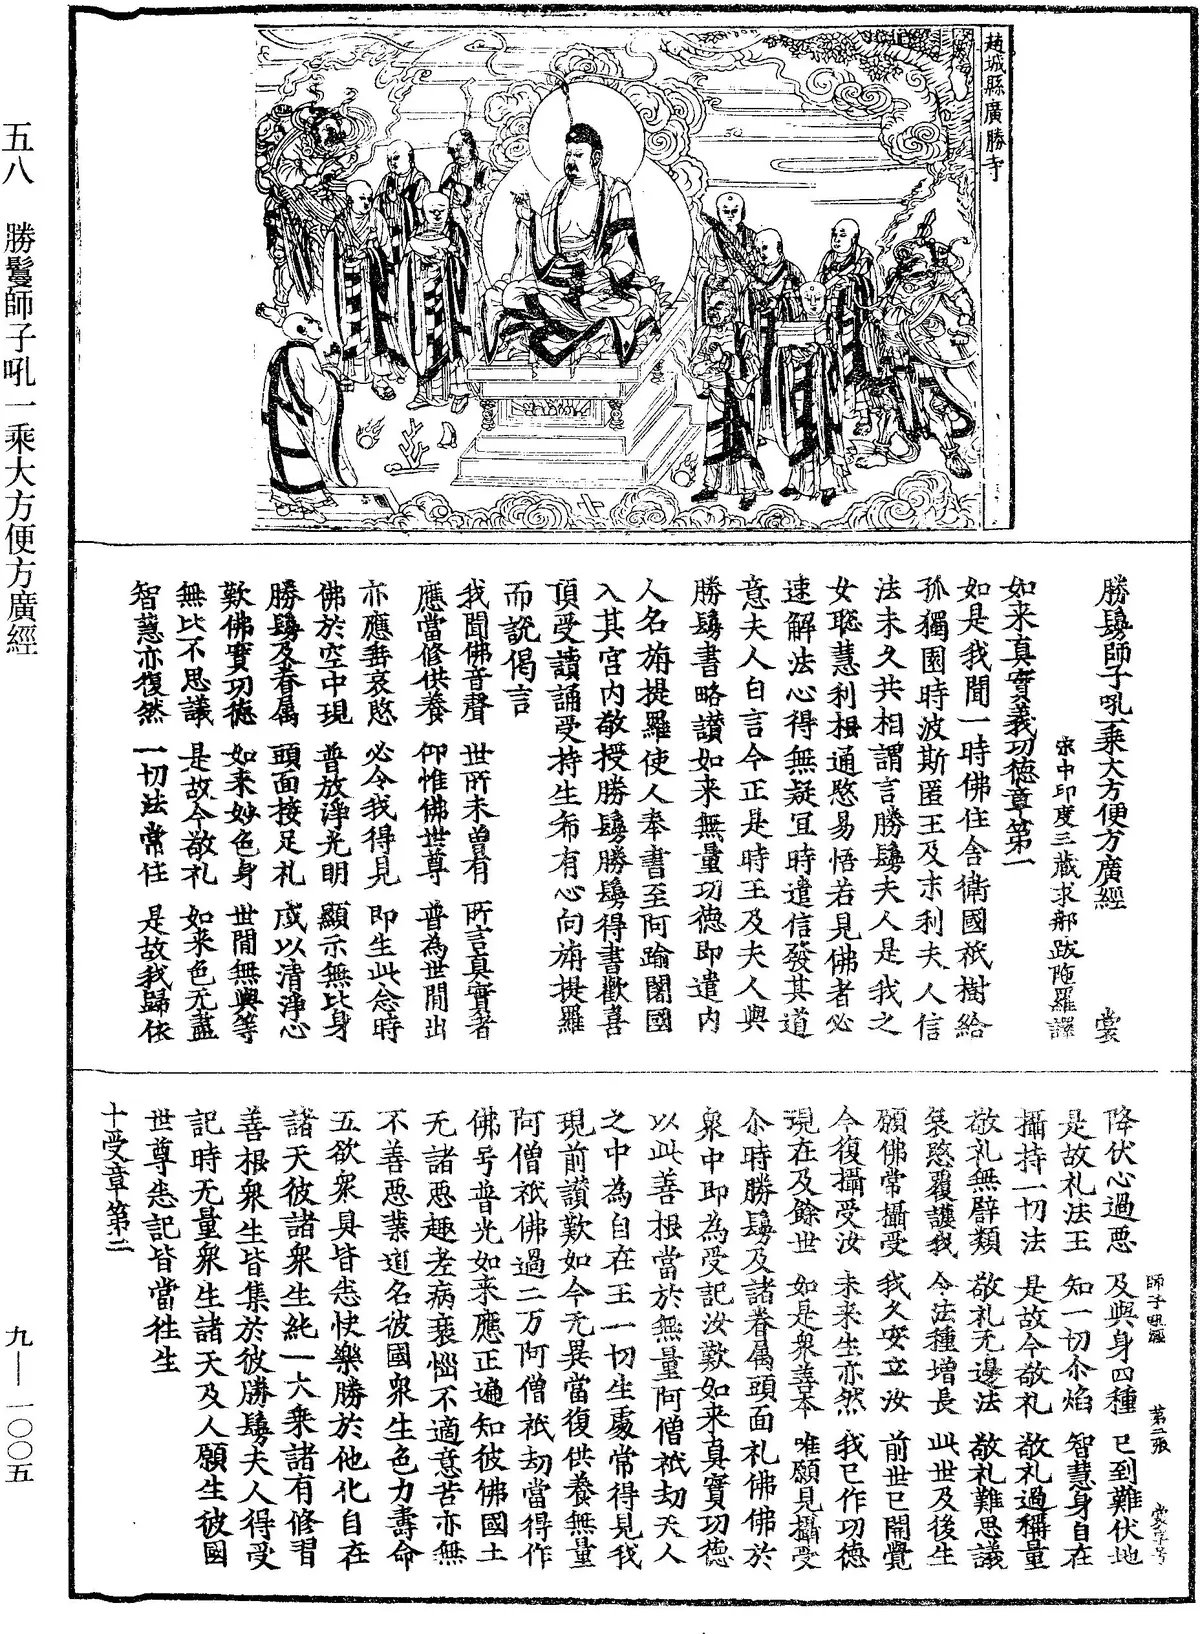 趙城縣廣勝寺
五八　勝鬘師子吼一乘大方便方廣經
九—一〇〇五
勝鬘師子吼一乘大方便方廣經　裳
宋中印度三藏求那跋陁羅譯
如来真實義功德章第一
如是我聞一時佛住舍衛國祇樹給
孤獨園時波斯匿王及末利夫人信
法未久共相謂言勝鬘夫人是我之
女聡慧利根通愍易悟若見佛者必
速解法心得無疑宜時遣信發其道
意夫人白言今正是時王及夫人與
勝鬘書略讃如来無量功德即遣内
人名旃提羅使人奉書至阿踰闍國
入其宮内敬授勝鬘勝鬘得書歡喜
頂受讀誦受持生希有心向旃提羅
而說偈言
我聞佛音聲　世所未曽有　所言真實者
應當修供養　仰惟佛世尊　普為世間出
亦應垂哀愍　必令我得見　即生此念時
佛於空中現　普放淨光明　顯示無比身
勝鬘及眷属　頭面接足礼　咸以清淨心
歎佛實功德　如来妙色身　世間無與等
無比不思議　是故今敬礼　如来色无盡
智慧亦復然　一切法常住　是故我歸依
師子吼經　第二張　裳字号
降伏心過悪　及與身四種　已到難伏地
是故礼法王　知一切尒焰　智慧身自在
攝持一切法　是故今敬礼　敬礼過稱量
敬礼無譬類　敬礼无邊法　敬礼難思議
哀愍覆護我　令法種増長　此世及後生
願佛常攝受　我久安立汝　前世已開覺
今復攝受汝　未来生亦然　我已作功德
現在及餘世　如是衆善本　唯願見攝受
尒時勝鬘及諸眷属頭面礼佛佛於
衆中即為受記汝歎如来真實功德
以此善根當於無量阿僧祇劫天人
之中為自在王一切生處常得見我
現前讃歎如今无異當復供養無量
阿僧祇佛過二万阿僧祇劫當得作
佛号普光如来應正遍知彼佛國土
无諸悪趣老病衰惱不適意苦亦無
不善悪業道名彼國衆生色力壽命
五欲衆具皆悉快樂勝於他化自在
諸天彼諸衆生純一大乘諸有修習
善根衆生皆集於彼勝鬘夫人得受
記時无量衆生諸天及人願生彼國
世尊悉記皆當徃生
十受章第二